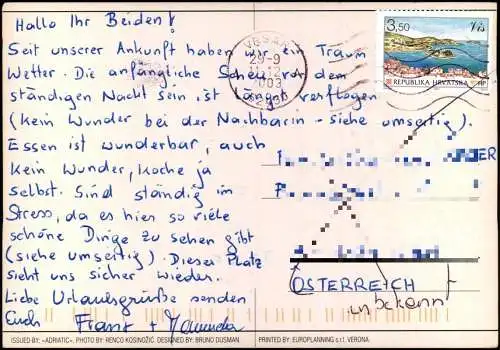 Hallo Ihr Beiden!
Seit unserer Ankunft haben wir ein Traum
Wetter. Die anfängliche Scheu vor dem
ständigen Nackt sein ist längst verflogen
(kein Wunder bei der Nachbarin - siehe umseitig).
Essen ist wunderbar, auch
kein Wunder, koche ja
selbst. Sind ständig im
Stress, da es hier so viele
schöne Dinge zu sehen gibt
(siehe umseitig). Dieser Platz
sieht uns sicher wieder.
Liebe Urlaubsgrüße senden
Euch Franz +
29-9
3,50 Vis
REPUBLIKA HRVATSKA
ÖSTERREICH
unbekannt
ISSUED BY: «ADRIATIC», PHOTO BY: RENCO KOSINOŽIĆ, DESIGNED BY: BRUNO DUŠMAN
PRINTED BY: EUROPLANNING s.r.l. VERONA